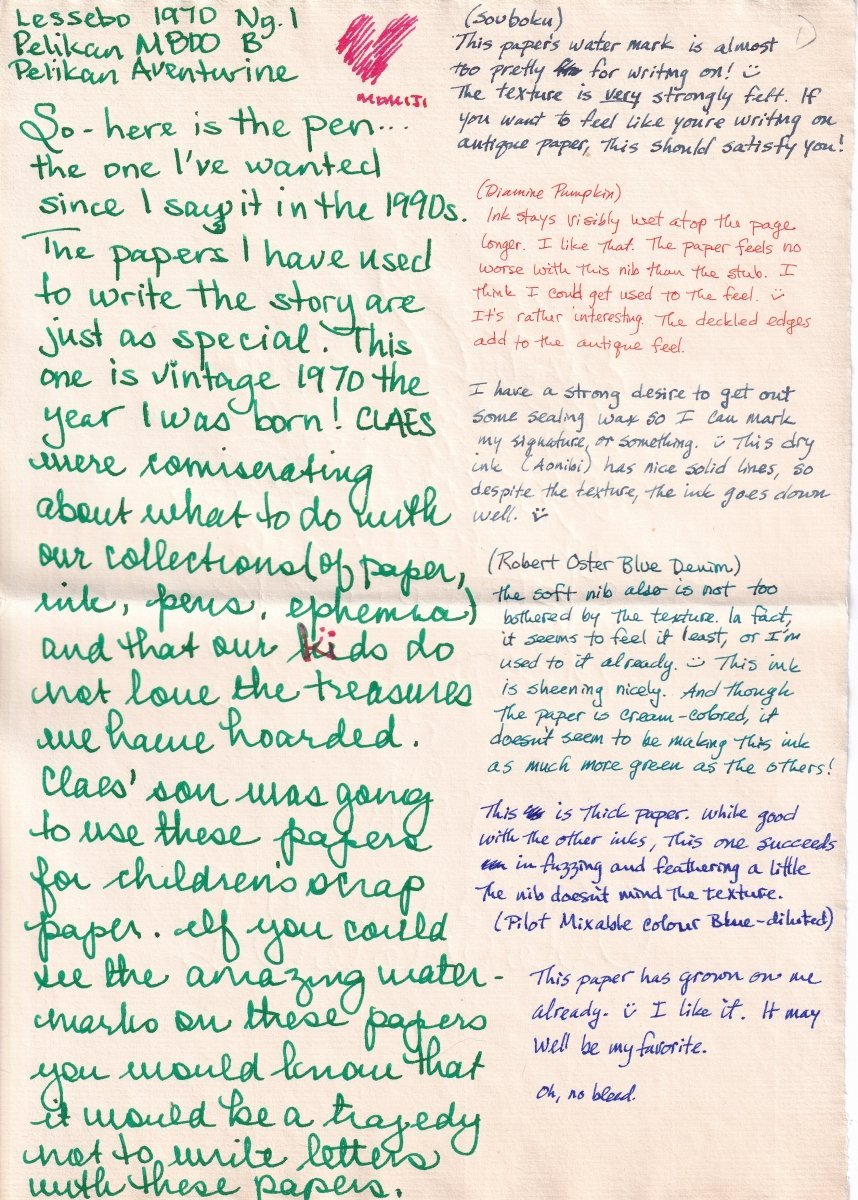 Lessebo 1970 Ng. 1
Pelikan M800 B
Pelikan Aventurine
MOMIJI
So - here is the pen...
the one I've wanted
since I say it in the 1990s.
The papers I have used
to write the story are
just as special. This
one is vintage 1970 the
year I was born! CLAES
were comiserating
about what to do with
our collections (of paper,
ink, pens, ephemra)
and that our kids do
not love the treasures
we have hoarded.
Claes' son was going
to use these papers
for children's scrap
paper. If you could
see the amazing water-
marks on these papers
you would know that
it would be a tragedy
not to write letters
with these papers.
1
(Souboku)
This paper's water mark is almost
too pretty for writing on! :)
The texture is very strongly felt. If
you want to feel like you're writing on
antique paper, this should satisfy you!
(Diamine Pumpkin)
Ink stays visibly wet atop the page
longer. I like that. The paper feels no
worse with this nib than the stub. I
think I could get used to the feel. :)
It's rather interesting. The deckled edges
add to the antique feel.
I have a strong desire to get out
some sealing wax so I can mark
my signature, or something. :) This dry
ink (Aonibi) has nice solid lines, so
despite the texture, the ink goes down
well. :)
(Robert Oster Blue Denim)
the soft nib also is not too
bothered by the texture. In fact,
it seems to feel it least, or I'm
used to it already. :) This ink
is sheening nicely. And though
the paper is cream-colored, it
doesn't seem to be making this ink
as much more green as the others!
This is thick paper. While good
with the other inks, this one succeeds
in fuzzing and feathering a little
The nib doesn't mind the texture.
(Pilot Mixable colour Blue-diluted)
This paper has grown on me
already. :) I like it. It may
well be my favorite.
Oh, no bleed.